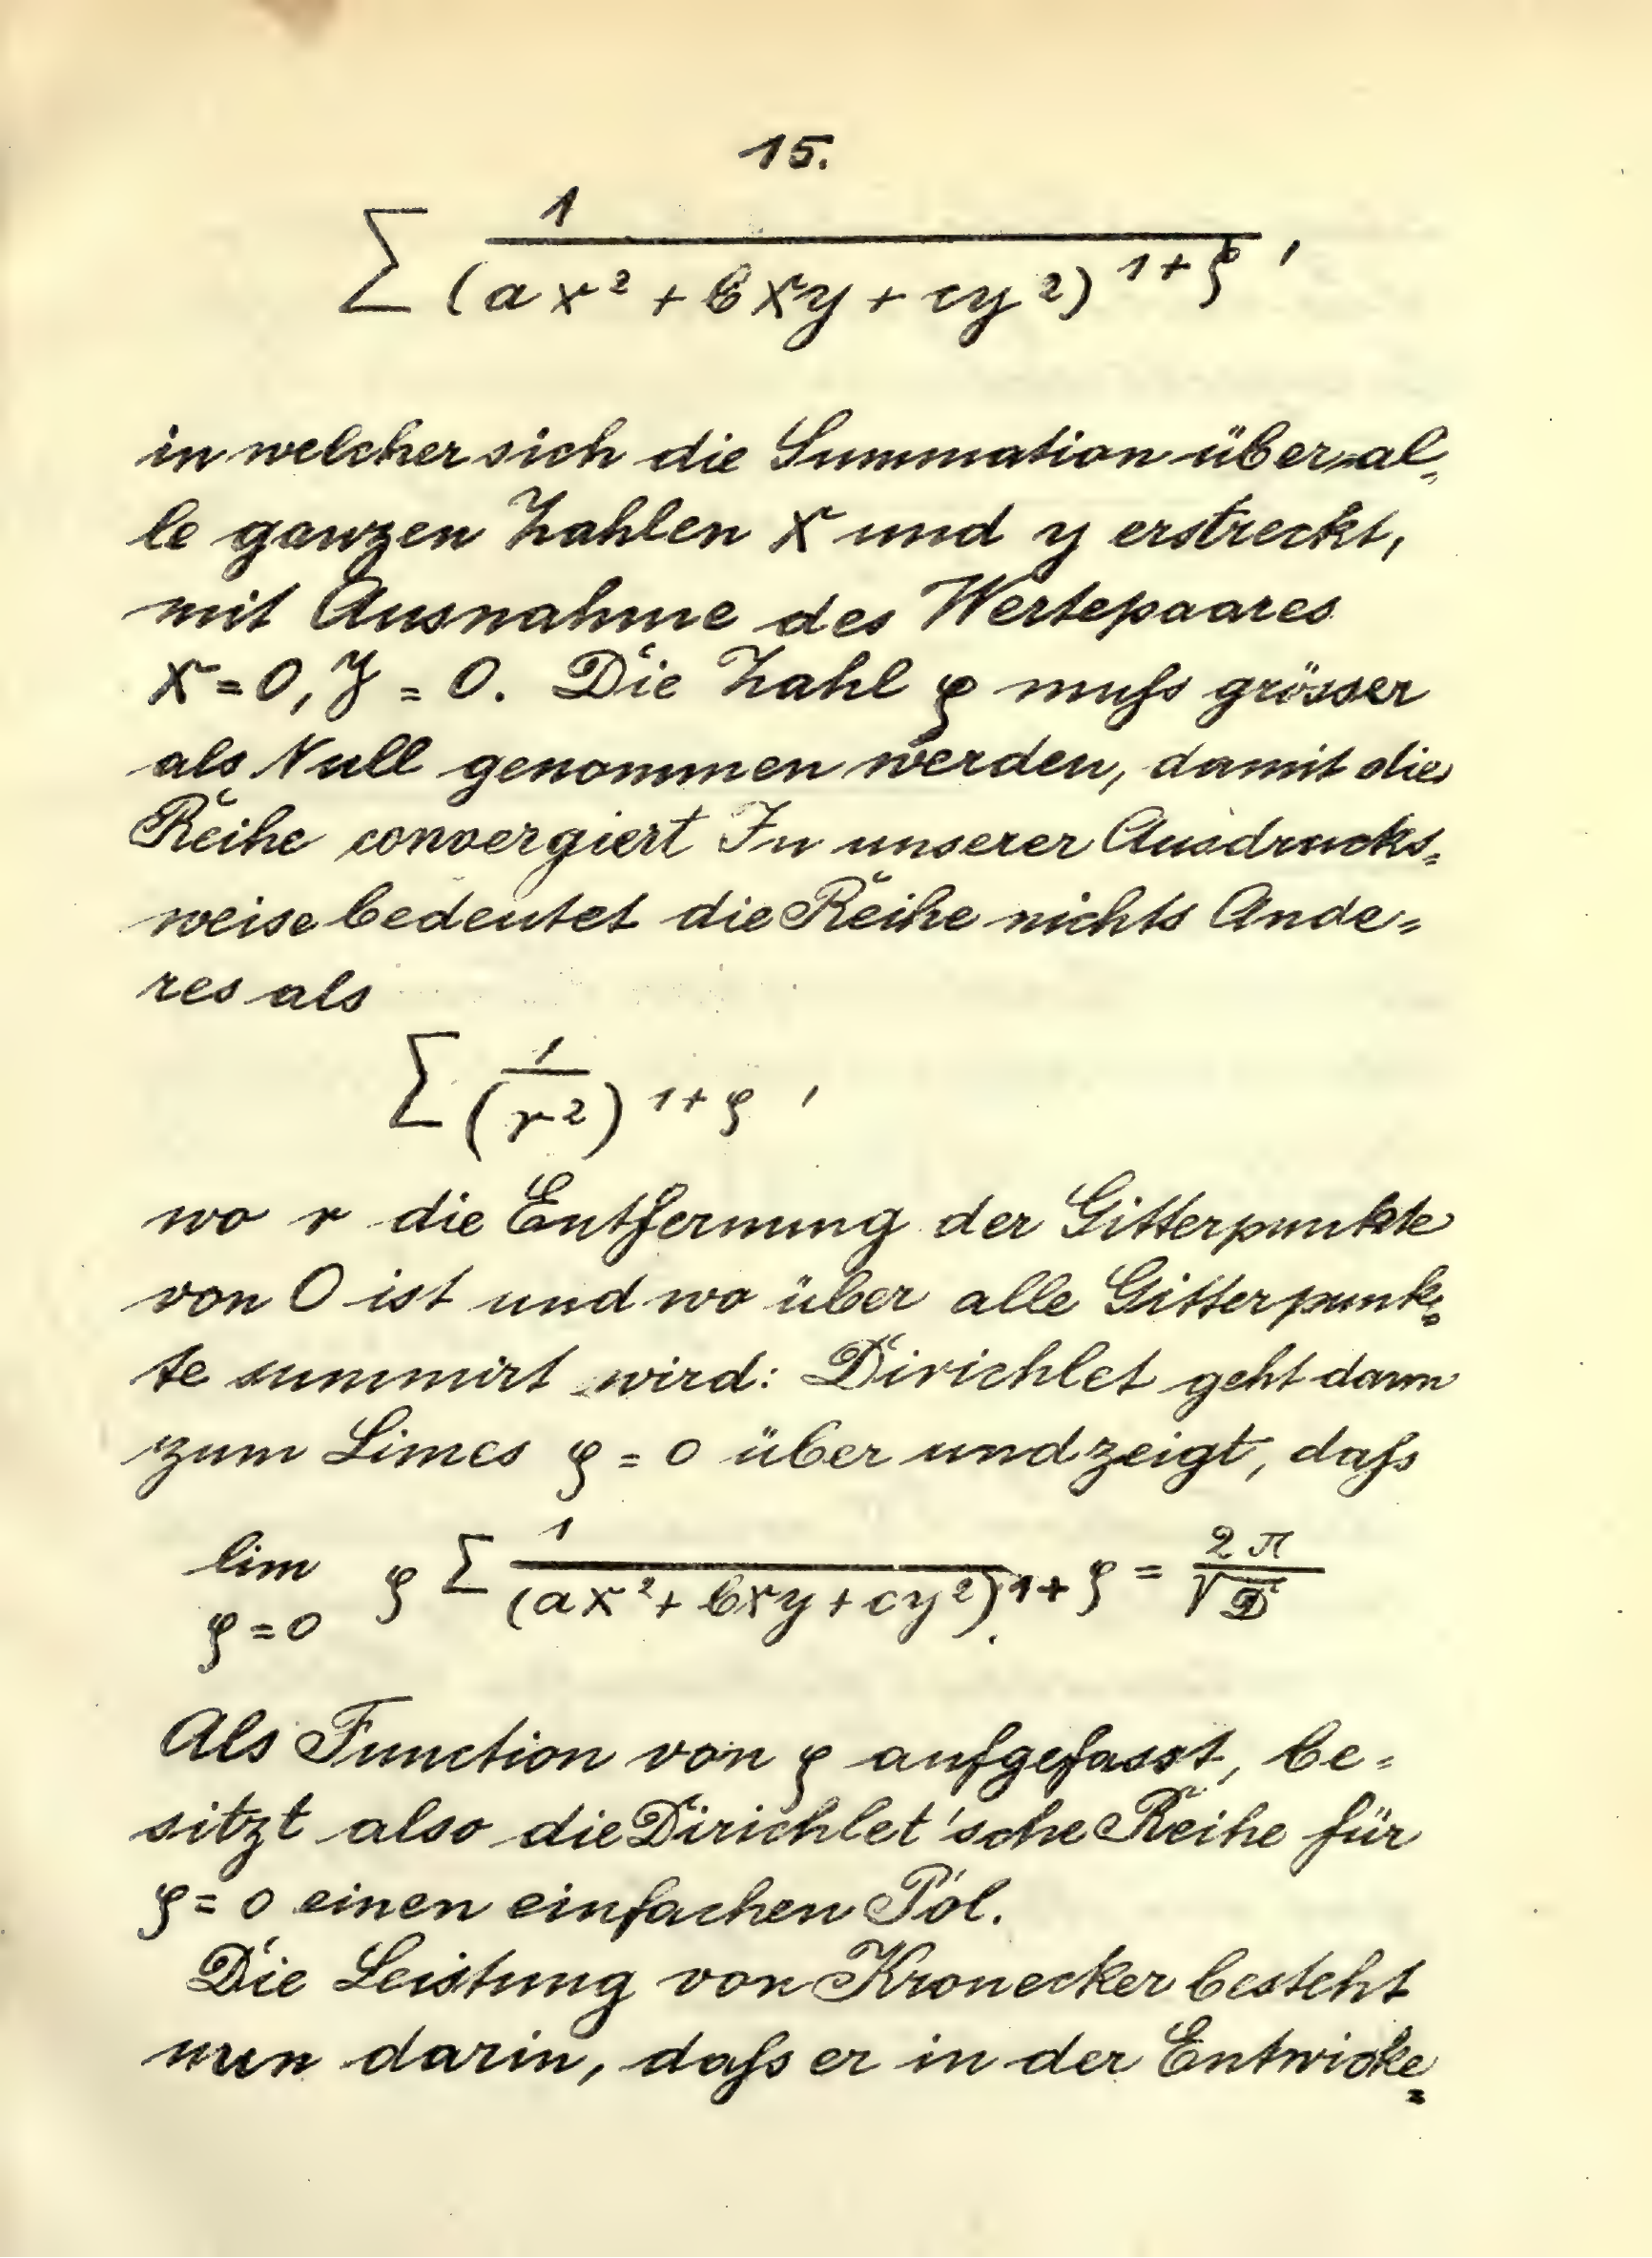 15.
∑ 1/(ax² + bxy + cy²)^{1+ρ} ,
in welcher sich die Summation über al-
le ganzen Zahlen x und y erstreckt,
mit Ausnahme des Wertepaares
x = 0, y = 0. Die Zahl ρ muſs grösser
als Null genommen werden, damit die
Reihe convergiert In unserer Ausdrucks-
weise bedeutet die Reihe nichts Ande-
res als
∑ (1/r²)^{1+ρ} ,
wo r die Entfernung der Gitterpunkte
von O ist und wo über alle Gitterpunk-
te summirt wird: Dirichlet geht dann
zum Limes ρ = 0 über und zeigt, daſs
lim_{ρ=0} ρ ∑ 1/(ax² + bxy + cy²)^{1+ρ} = 2π/√D
Als Function von ρ aufgefasst, be-
sitzt also die Dirichlet'sche Reihe für
ρ = 0 einen einfachen Pol.
Die Leistung von Kronecker besteht
nun darin, daſs er in der Entwicke-